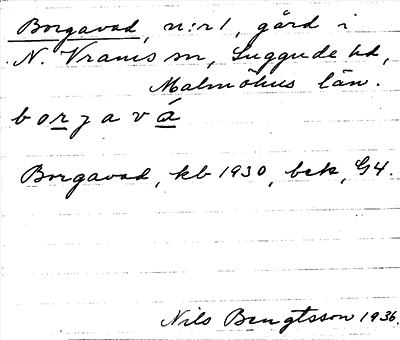 Borgavad, n:r 1, gård i
N. Vrams sn, Luggude hd,
Malmöhus län.
borgavá
Borgavad, kb 1930, bek, G4.
Nils Bengtsson 1936.